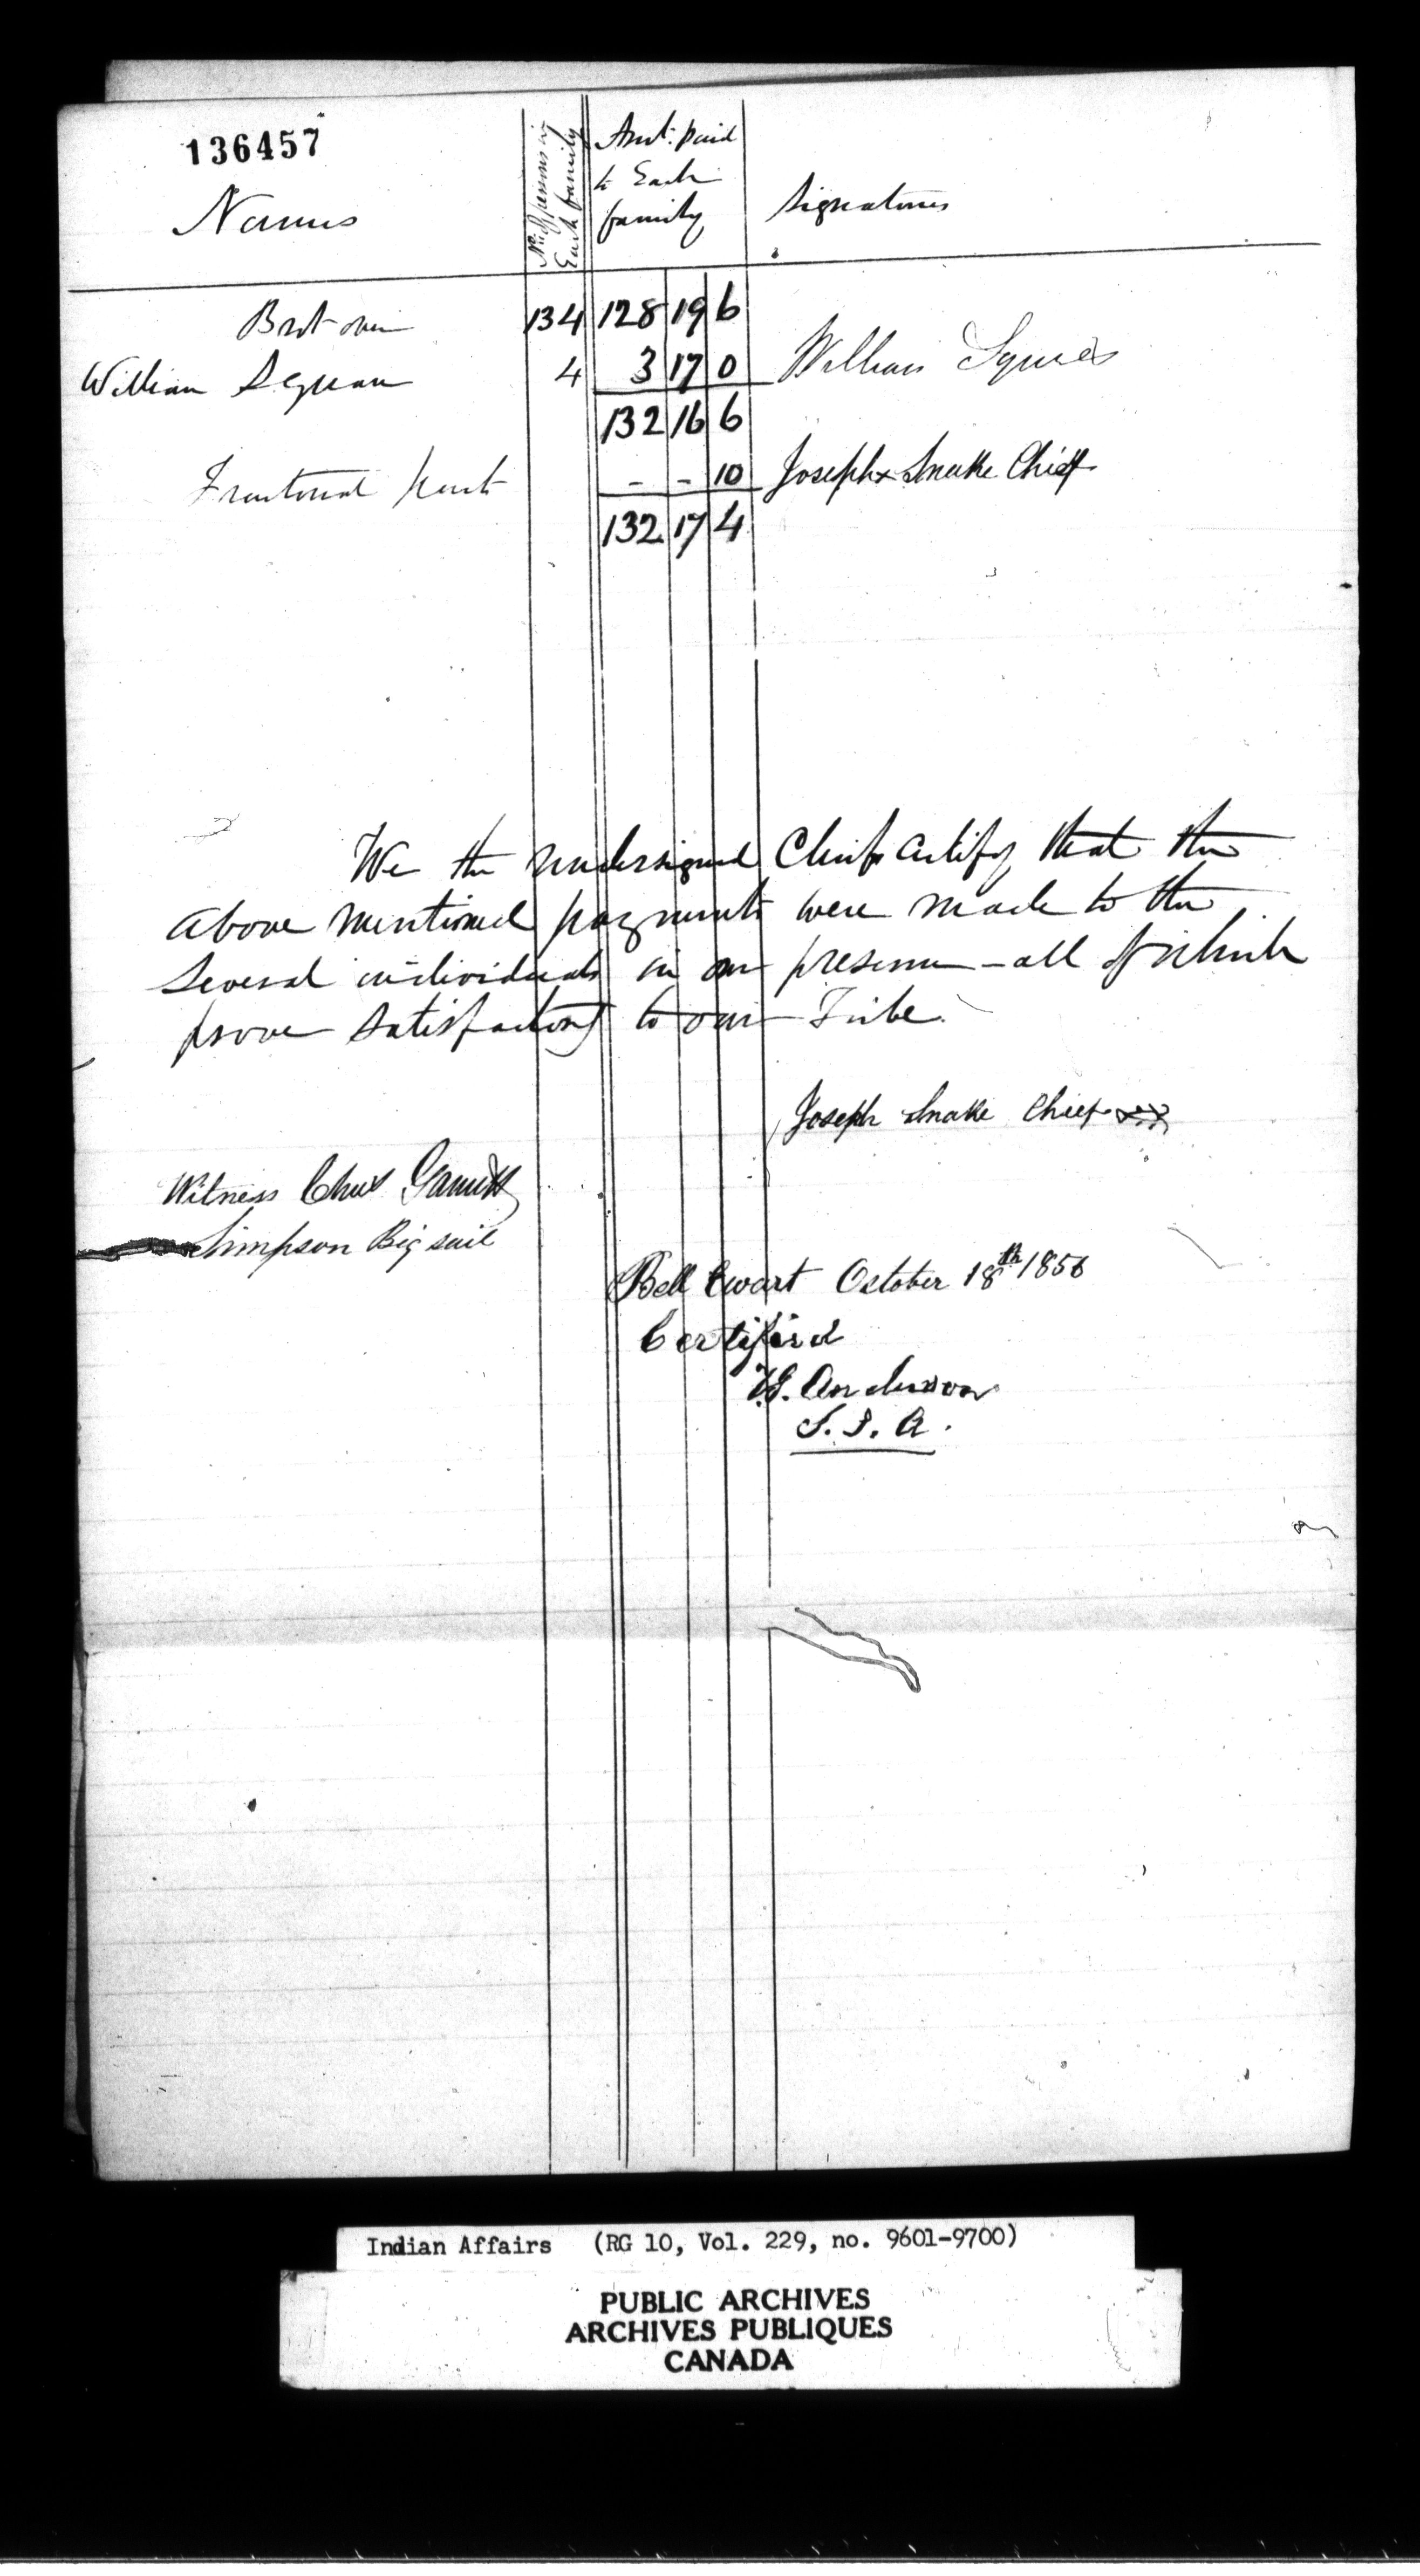 136457
Names
No. of persons in
Each family
Amt. paid
to Each
family
Signatures
Brot over 134 128 19 6
William Squan 4 3 17 0 William Squires
132 16 6
Fractional part - - 10 Joseph x Snake Chief
132 17 4
We the undersigned Chiefs certify that the
above mentioned payments were made to the
several individuals in our presence - all of which
prove satisfactory to our Tribe.
Joseph Snake Chief
Witness Chas
Simpson Big sail
Bell Ewart October 18th 1856
Certified
Anderson
S. I. A.
Indian Affairs (RG 10, Vol. 229, no. 9601-9700)
PUBLIC ARCHIVES
ARCHIVES PUBLIQUES
CANADA